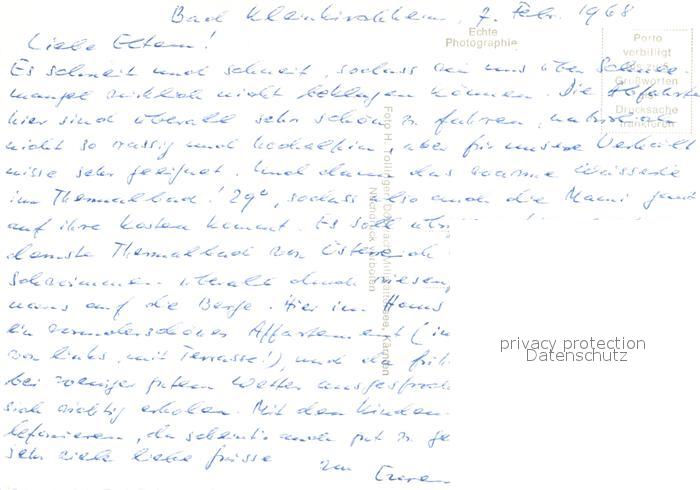 Bad Kleinkirchheim, 7. Febr. 1968
Liebe Eltern!
Echte
Photographie
Porto
verbilligt
bis zu 5
Grußworten
Drucksache
frankieren
Es schneit und schneit, sodass wir uns über Schnee-
mangel wirklich nicht beklagen können. Die Abfahrten
hier sind überall sehr schön zu fahren, natürlich
nicht so rassig und hochalpin, aber für unsere Verhält-
nisse sehr geeignet. Und dann das warme Wasserle
im Thermalbad! 29°, sodass also auch die Mami ganz
auf ihre Kosten kommt. Es soll übri
dernste Thermalbad von Österreich
Schwimmen überall durch riesen
naus auf die Berge. Hier im Haus
ein wunderschönes Appartement (im
von links, mit Terrasse!), und da
bei weniger gutem Wetter ausgesproch
sich richtig erholen. Mit den Kindern
telefonieren, da scheint's auch gut zu ge
sehr viele liebe Grüsse
von Euren
Foto H. Tollinger, Döbriach/Millstättersee, Kärnten
Nachdruck verboten
privacy protection
Datenschutz